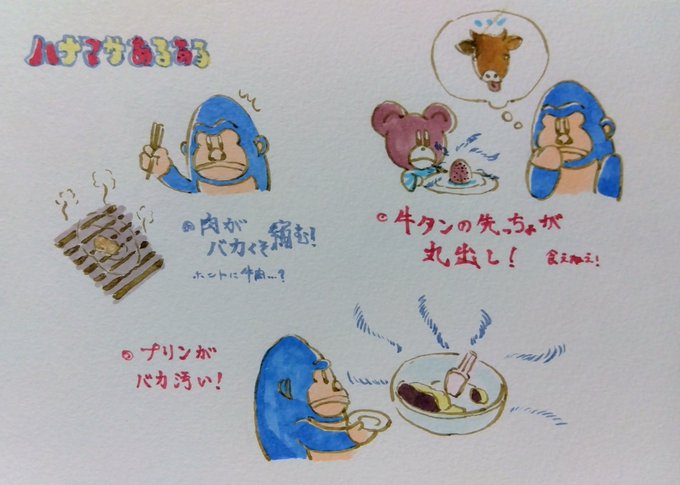 ハナマサあるある
肉が
バカくそ縮む!
ホントに牛肉…?
牛タンの先っちょが
丸出し! 食えねえ!
プリンが
バカ汚い!